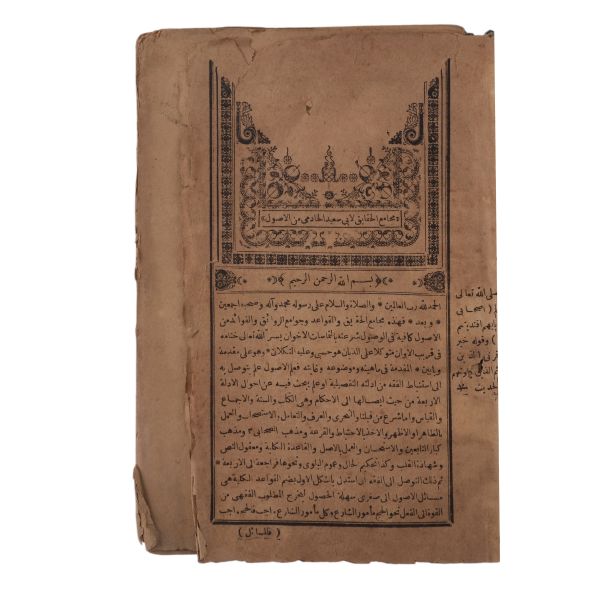 ﴿ مجامع الحقايق لابي سعيد الخادمى من الاصول ﴾
﴿ بسم الله الرحمن الرحيم ﴾
الحمد لله رب العالمين * والصلاة والسلام على رسوله محمد وآله وصحبه اجمعين
* وبعد * فهذه مجامع الحقايق والقواعد وجوامع الروائق والفوائد من
الاصول كافية فى الوصول شرعته بالتماسات الاخوان يسر الله تعالى ختامه
فى قريب الاوان متوكلا على الديان هو حسبى وعليه التكلان * وهو على مقدمة
وبابين * المقدمة فى ماهيته وموضوعه وغايته فعلم الاصول علم يتوصل به
الى استنباط الفقه من ادلته التفصيلية او علم يبحث فيه عن احوال الادلة
الاربعة من حيث ايصالها الى الاحكام وهى الكتاب والسنة والاجماع
والقياس واما شرع من قبلنا والتحرى والعرف والتعامل والاستصحاب والعمل
بالظاهر او الاظهر والاخذ بالاحتياط والقرعة ومذهب الصحابى ومذهب
كبار التابعين والاستحسان والعمل بالاصل والقاعدة الكلية ومعقول النص
وشهادة القلب وكذا تحكيم الحال وعموم البلوى ونحوها فراجعة الى الاربعة *
ثم ذلك التوصل الى الفقه ان استدل بالشكل الاول بضم القواعد الكلية هى
مسائل الاصول الى صغرى سهلة الحصول ليخرج المطلوب الفقهى من
القوة الى الفعل نحو الحج مأمور الشارع وكل مأمور الشارع واجب فالحج واجب
( فالمسائل )
صلى الله تعالى
( اصحابى
بايهم اقتديتم
) وقوله خير